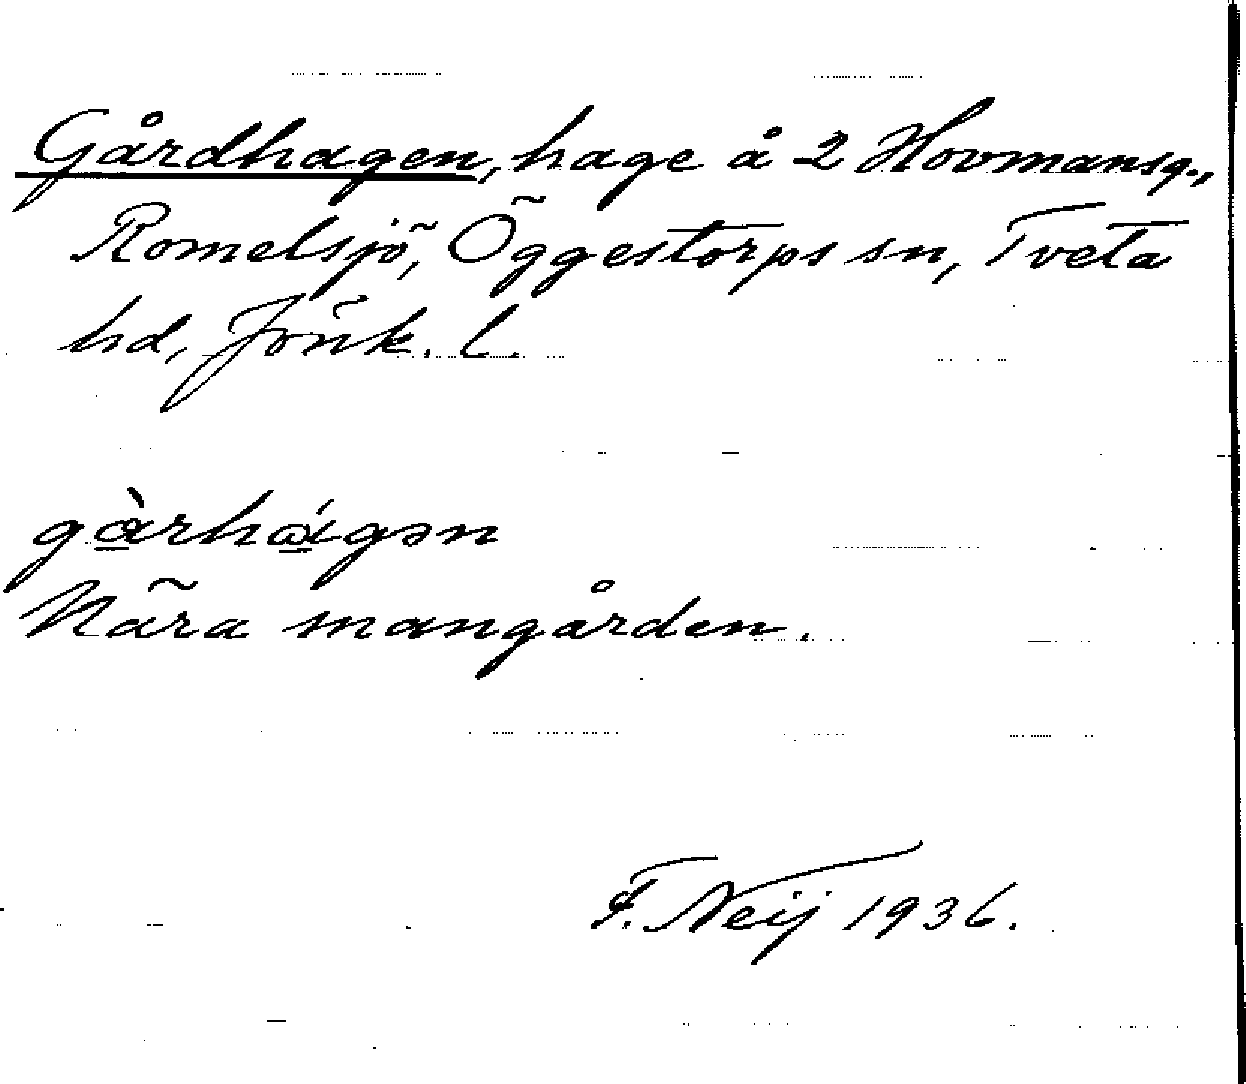 Gårdhagen, hage å 2 Hovmansg.,
Romelsjö, Öggestorps sn, Tveta
hd, Jönk. l.
gàrhágən
Nära mangården.
F. Neij 1936.